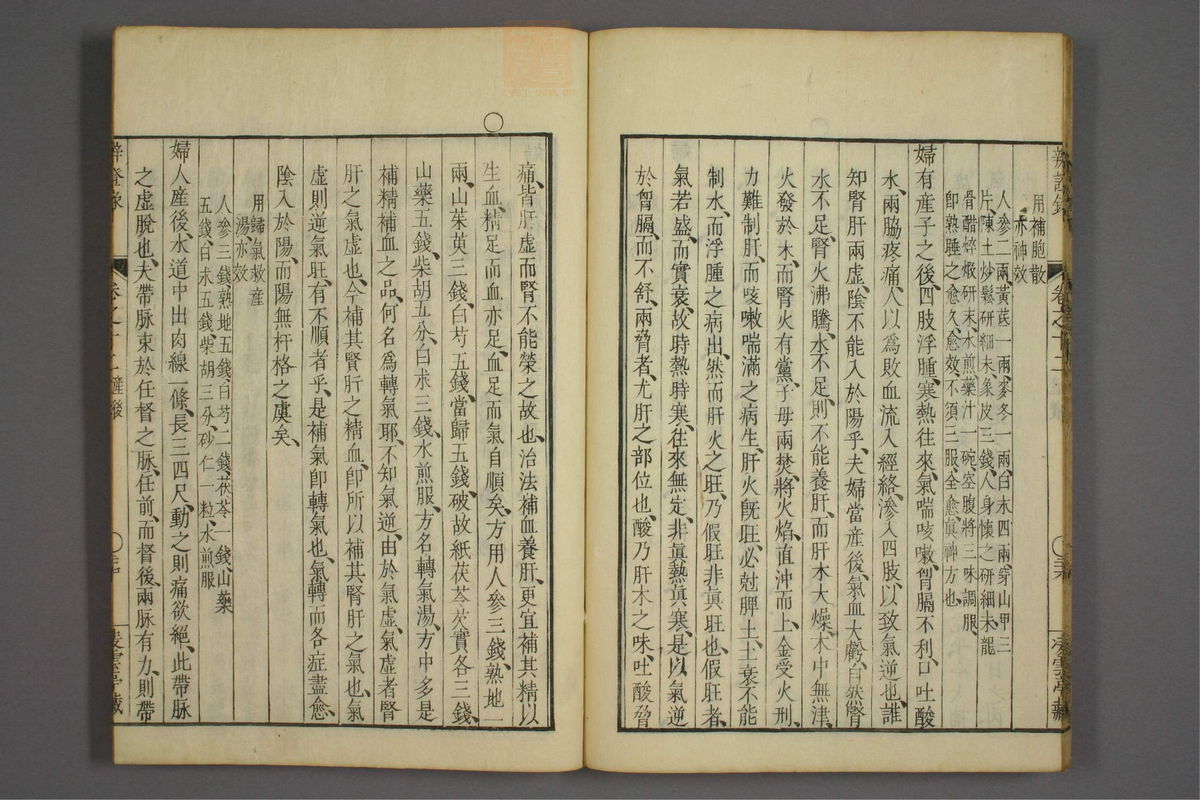 辨證錄 卷之十二
凌雲亭藏
用補胞散
亦神效
人參二兩、黃芪一兩、麥冬一兩、白朮四兩、穿山甲三
片、陳土炒鬆研細末、象皮三錢、人身懷之研細末、龍
骨醋焠煅研末、水煎藥汁一碗、空腹將三味調服、
卽熟睡之、愈久、愈效、不須三服、全愈、眞神方也、
婦有產子之後、四肢浮腫、寒熱往來、氣喘咳嗽、胷膈不利、口吐酸
水、兩脇疼痛、人以爲敗血流入經絡、滲入四肢、以致氣逆也、誰
知腎肝兩虛、陰不能入於陽乎、夫婦當產後、氣血大虧、自然腎
水不足、腎火沸騰、水不足、則不能養肝、而肝木大燥、木中無津、
火發於木、而腎火有黨、子母兩焚、將火焰直沖而上、金受火刑、
力難制肝、而咳嗽喘滿之病生、肝火既旺、必尅脾土、土衰不能
制水、而浮腫之病出、然而肝火之旺、乃假旺非眞旺也、假旺者、
氣若盛、而實衰、故時熱時寒、往來無定、非眞熱眞寒、是以氣逆
於胷膈、而不舒、兩脅者、尤肝之部位也、酸乃肝木之味、吐酸脅
痛、皆肝虛而腎不能榮之故也、治法補血養肝、更宜補其精以
生血、精足而血亦足、血足而氣自順矣、方用人參三錢、熟地一
兩、山茱萸三錢、白芍五錢、當歸五錢、破故紙茯苓芡實各三錢、
山藥五錢、柴胡五分、白朮三錢、水煎服、方名轉氣湯、方中多是
補精補血之品、何名爲轉氣耶、不知氣逆、由於氣虛、氣虛者腎
肝之氣虛也、今補其腎肝之精血、卽所以補其腎肝之氣也、氣
虛則逆氣旺、有不順者乎、是補氣卽轉氣也、氣轉而各症盡愈、
陰入於陽、而陽無杆格之虞矣、
用歸氣救產
湯、亦效
人參三錢、熟地五錢、白芍二錢、茯苓一錢、山藥
五錢、白朮五錢、柴胡三分、砂仁一粒、水煎服
婦人產後、水道中出肉線一條、長三四尺、動之則痛欲絕、此帶脈
之虛脫也、夫帶脉束於任督之脉、任前、而督後、兩脉有力、則帶
卷之十二產後
凌雲亭藏